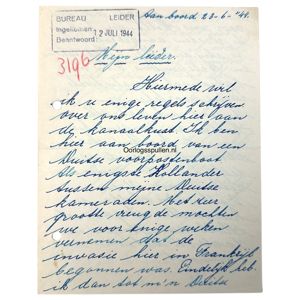 BUREAU LEIDER
Ingekomen: 12 JULI 1944
Beantwoord:
Aan boord 23-6-'44.
3196
Mijn leider.
Hiermede wil
ik u enige regels schrijven
over ons leven hier aan
de kanaalkust. Ik ben
hier aan boord van een
Oorlogsspullen.nl
Duitse voorpostenboot
als enigste Hollander
tussen mijne Duitse
kameraden. Met zeer
groote vreugde mochten
we voor enige weken
vernemen dat de
invasie hier in Frankrijk
begonnen was. Eindelijk heb
ik dan tot m'n Duitse